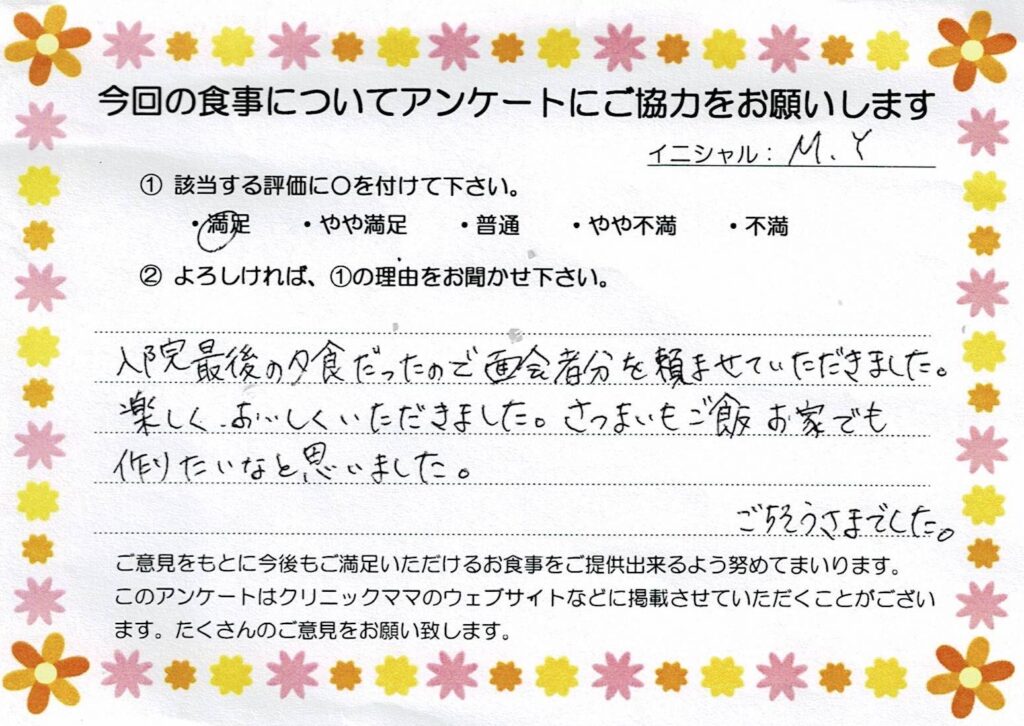 今回の食事についてアンケートにご協力をお願いします
イニシャル： M.Y
① 該当する評価に〇を付けて下さい。
・満足 ・やや満足 ・普通 ・やや不満 ・不満
② よろしければ、①の理由をお聞かせ下さい。
入院最後の夕食だったので面会者分を頼ませていただきました。
楽しく、おいしくいただきました。さつまいもご飯 お家でも
作りたいなと思いました。
ごちそうさまでした。
ご意見をもとに今後もご満足いただけるお食事をご提供出来るよう努めてまいります。
このアンケートはクリニックママのウェブサイトなどに掲載させていただくことがござい
ます。たくさんのご意見をお願い致します。